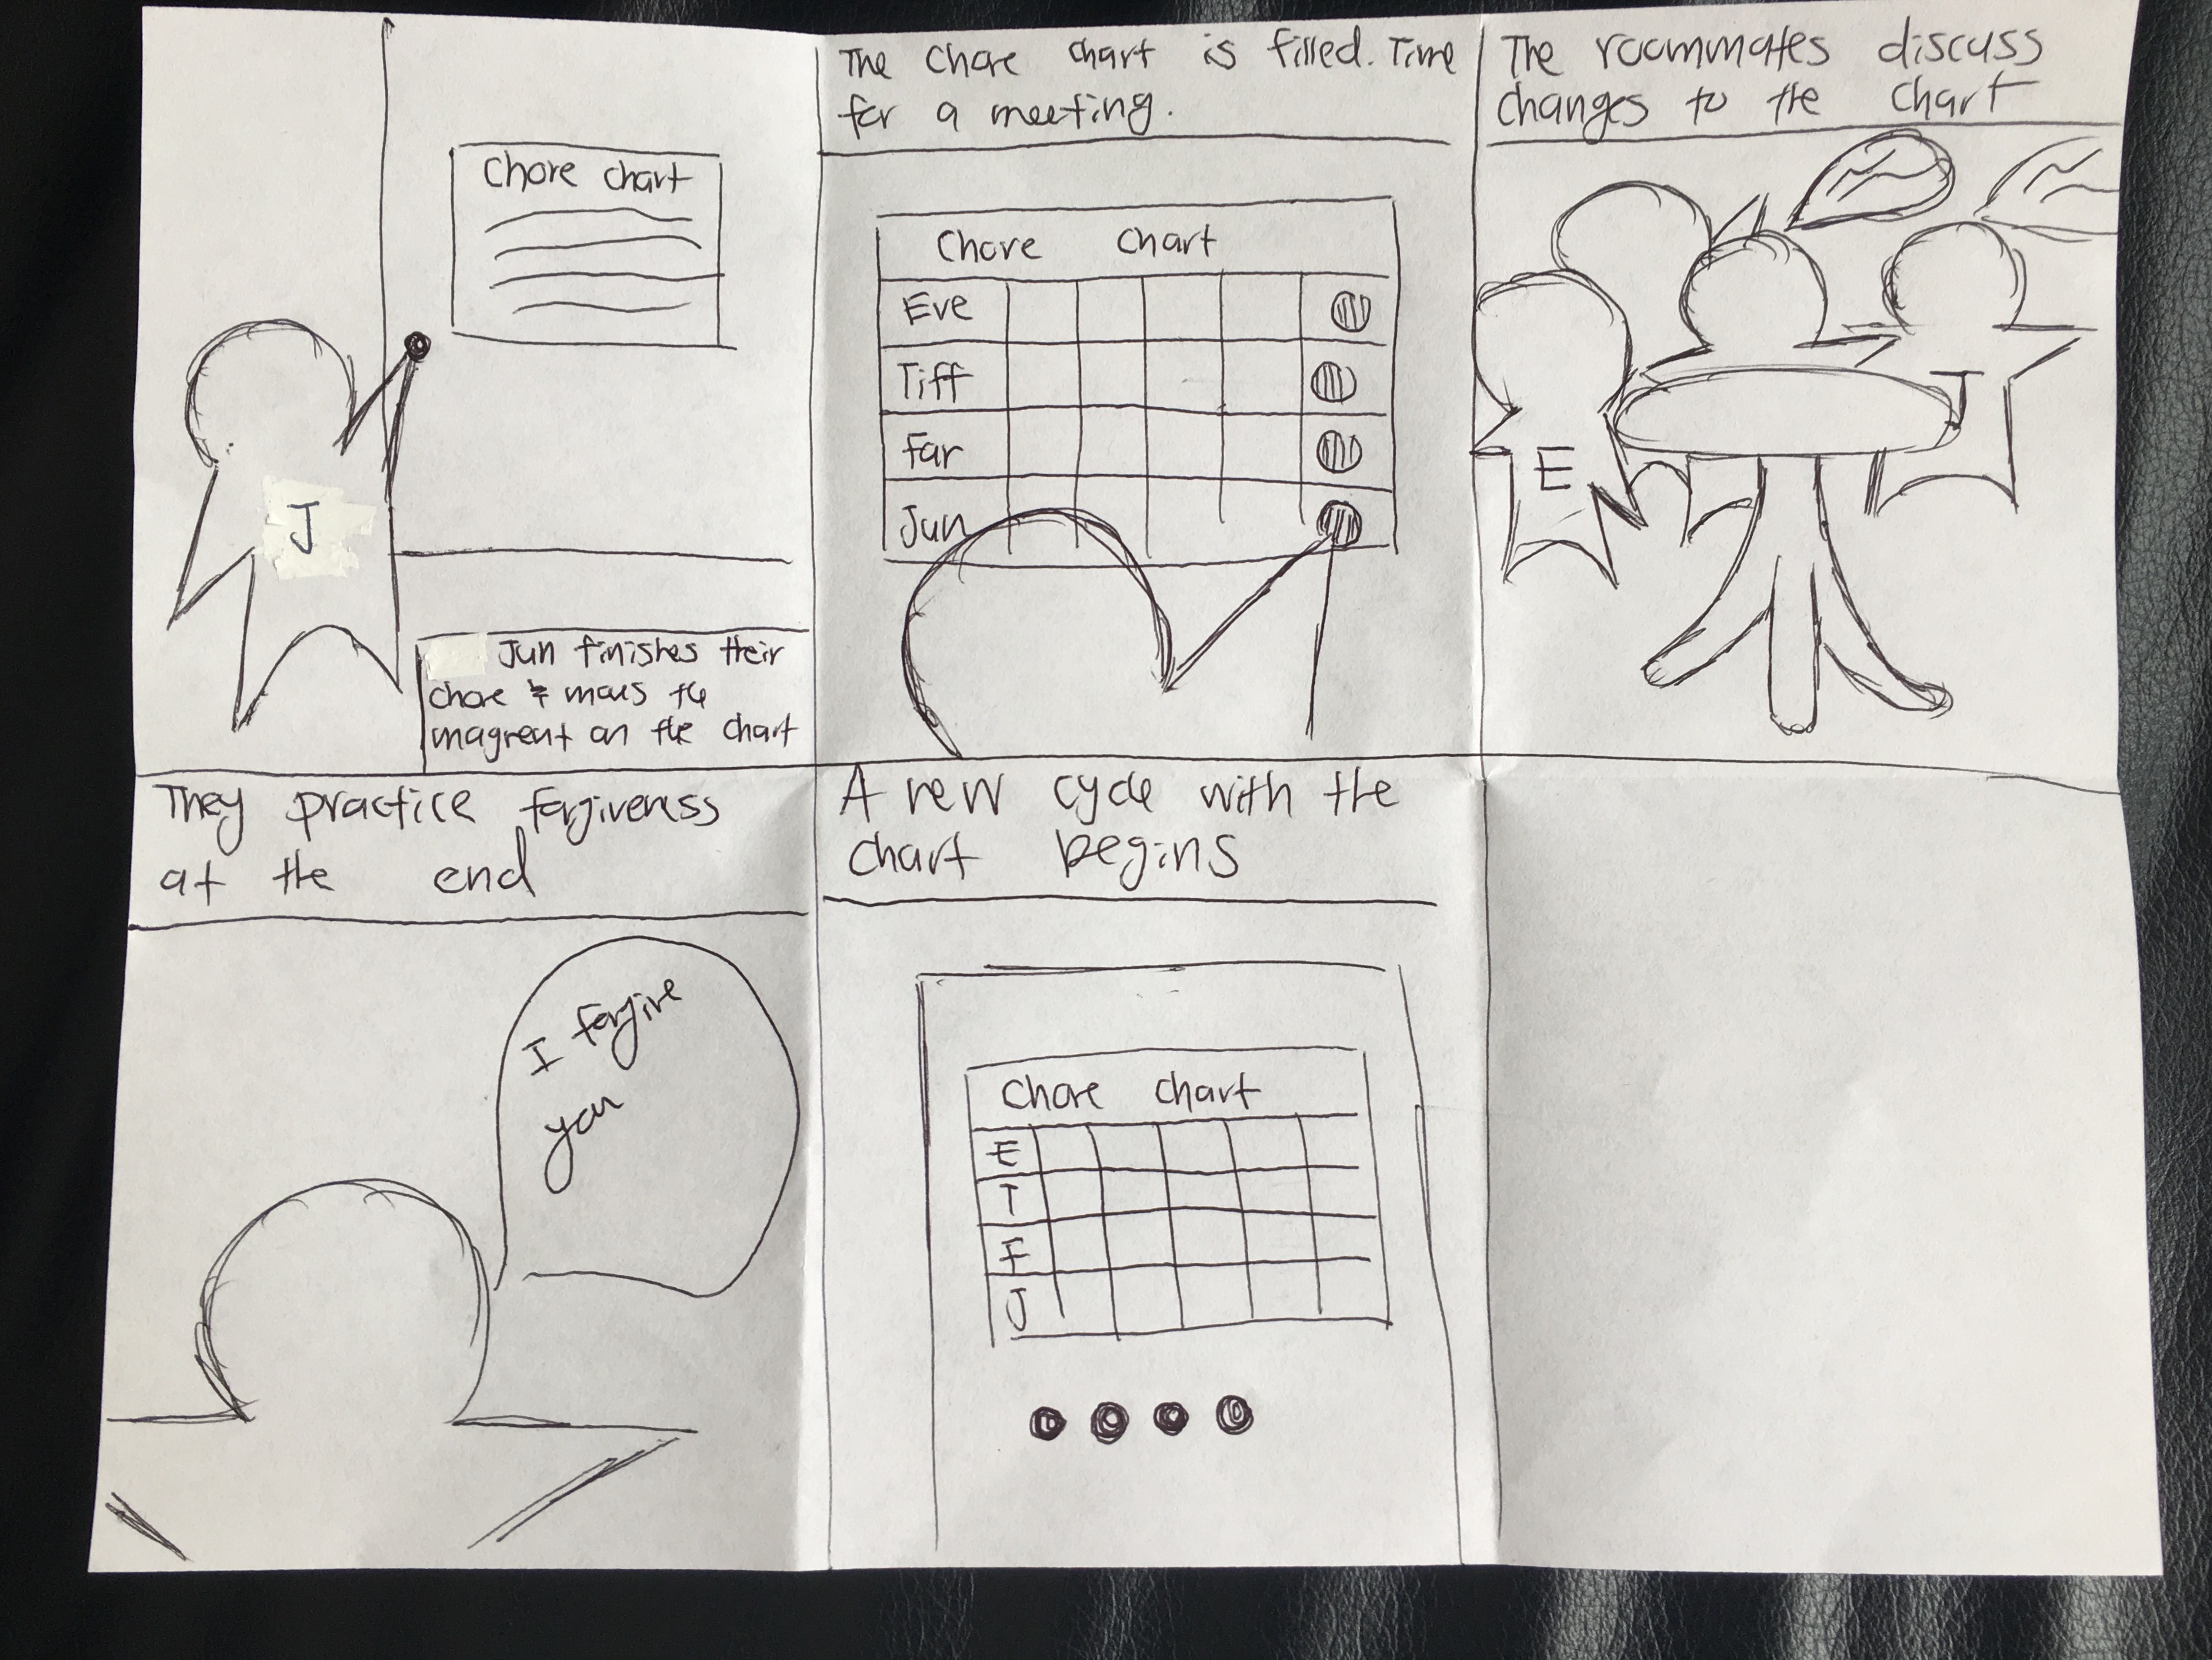 Chore chart
J
Jun finishes their
chore & moves the
magnent on the chart
The chore chart is filled. Time
for a meeting.
Chore chart
Eve
Tiff
Far
Jun
The roommates discuss
changes to the chart
E
J
They practice forgiveness
at the end
I forgive
you
A new cycle with the
chart begins
Chore chart
E
T
F
J